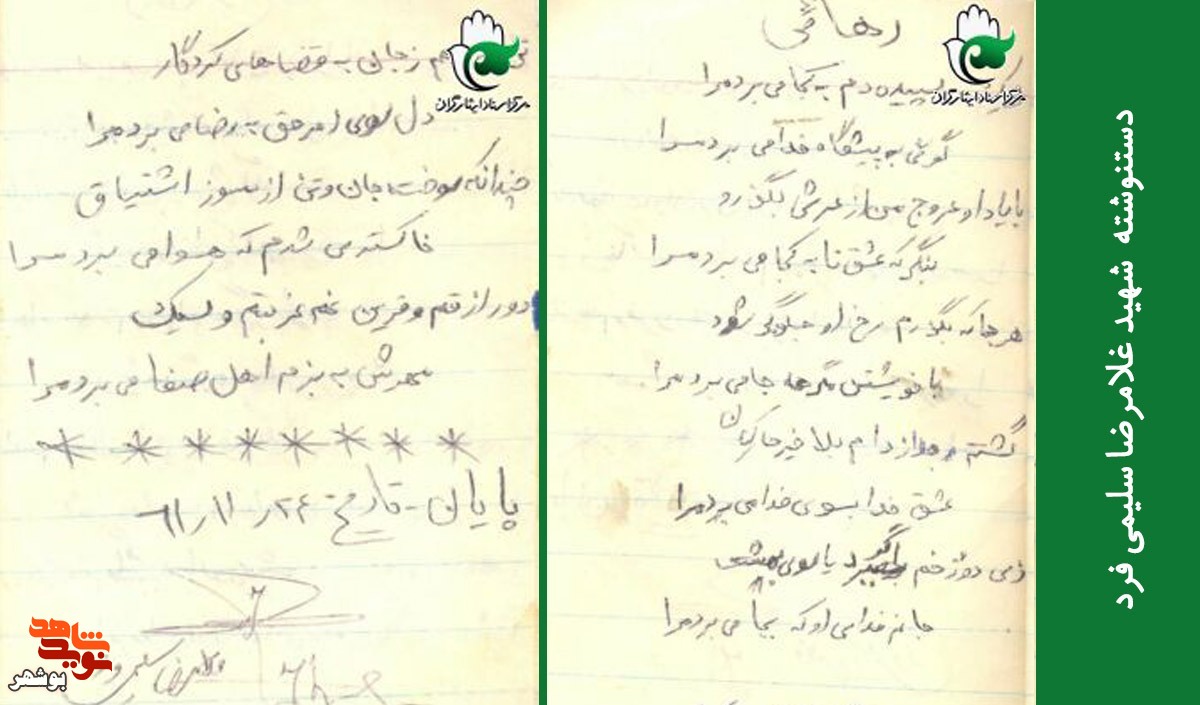 دستنوشته شهید غلامرضا سلیمی فرد
مرکز اسناد ایثارگران
سپیده دم به کجا می برد مرا
گوئی به پیشگاه خدا می برد مرا
با یاد او عروج من از عرش بگذرد
بنگر که عشق تا به کجا می برد مرا
هر جا که بگذرم رخ او جلوگر شود
با خویشتن به همه جا می برد مرا
گشتم جدا ز دام بلا خیز خاکیان
عشق خدا بسوی خدا می برد مرا
زی دوزخم برد یا سوی بهشت
جانم فدای او که بجا می برد مرا
مرکز اسناد ایثارگران
هم ز جان به قضاهای کردگار
دل سوی امر حق به رضا می برد مرا
چندانکه سوخت جان و تن از سوز اشتیاق
خاکستری شدم که هوا می برد مرا
دور از تو و قرین غم غربتم ولیک
مهرش به بزم اهل صفا می برد مرا
پایان - تاریخ ۲۴ / ۱۱ / ۶۱
غلامرضا سلیمی فرد
نوید شاهد
بوشهر